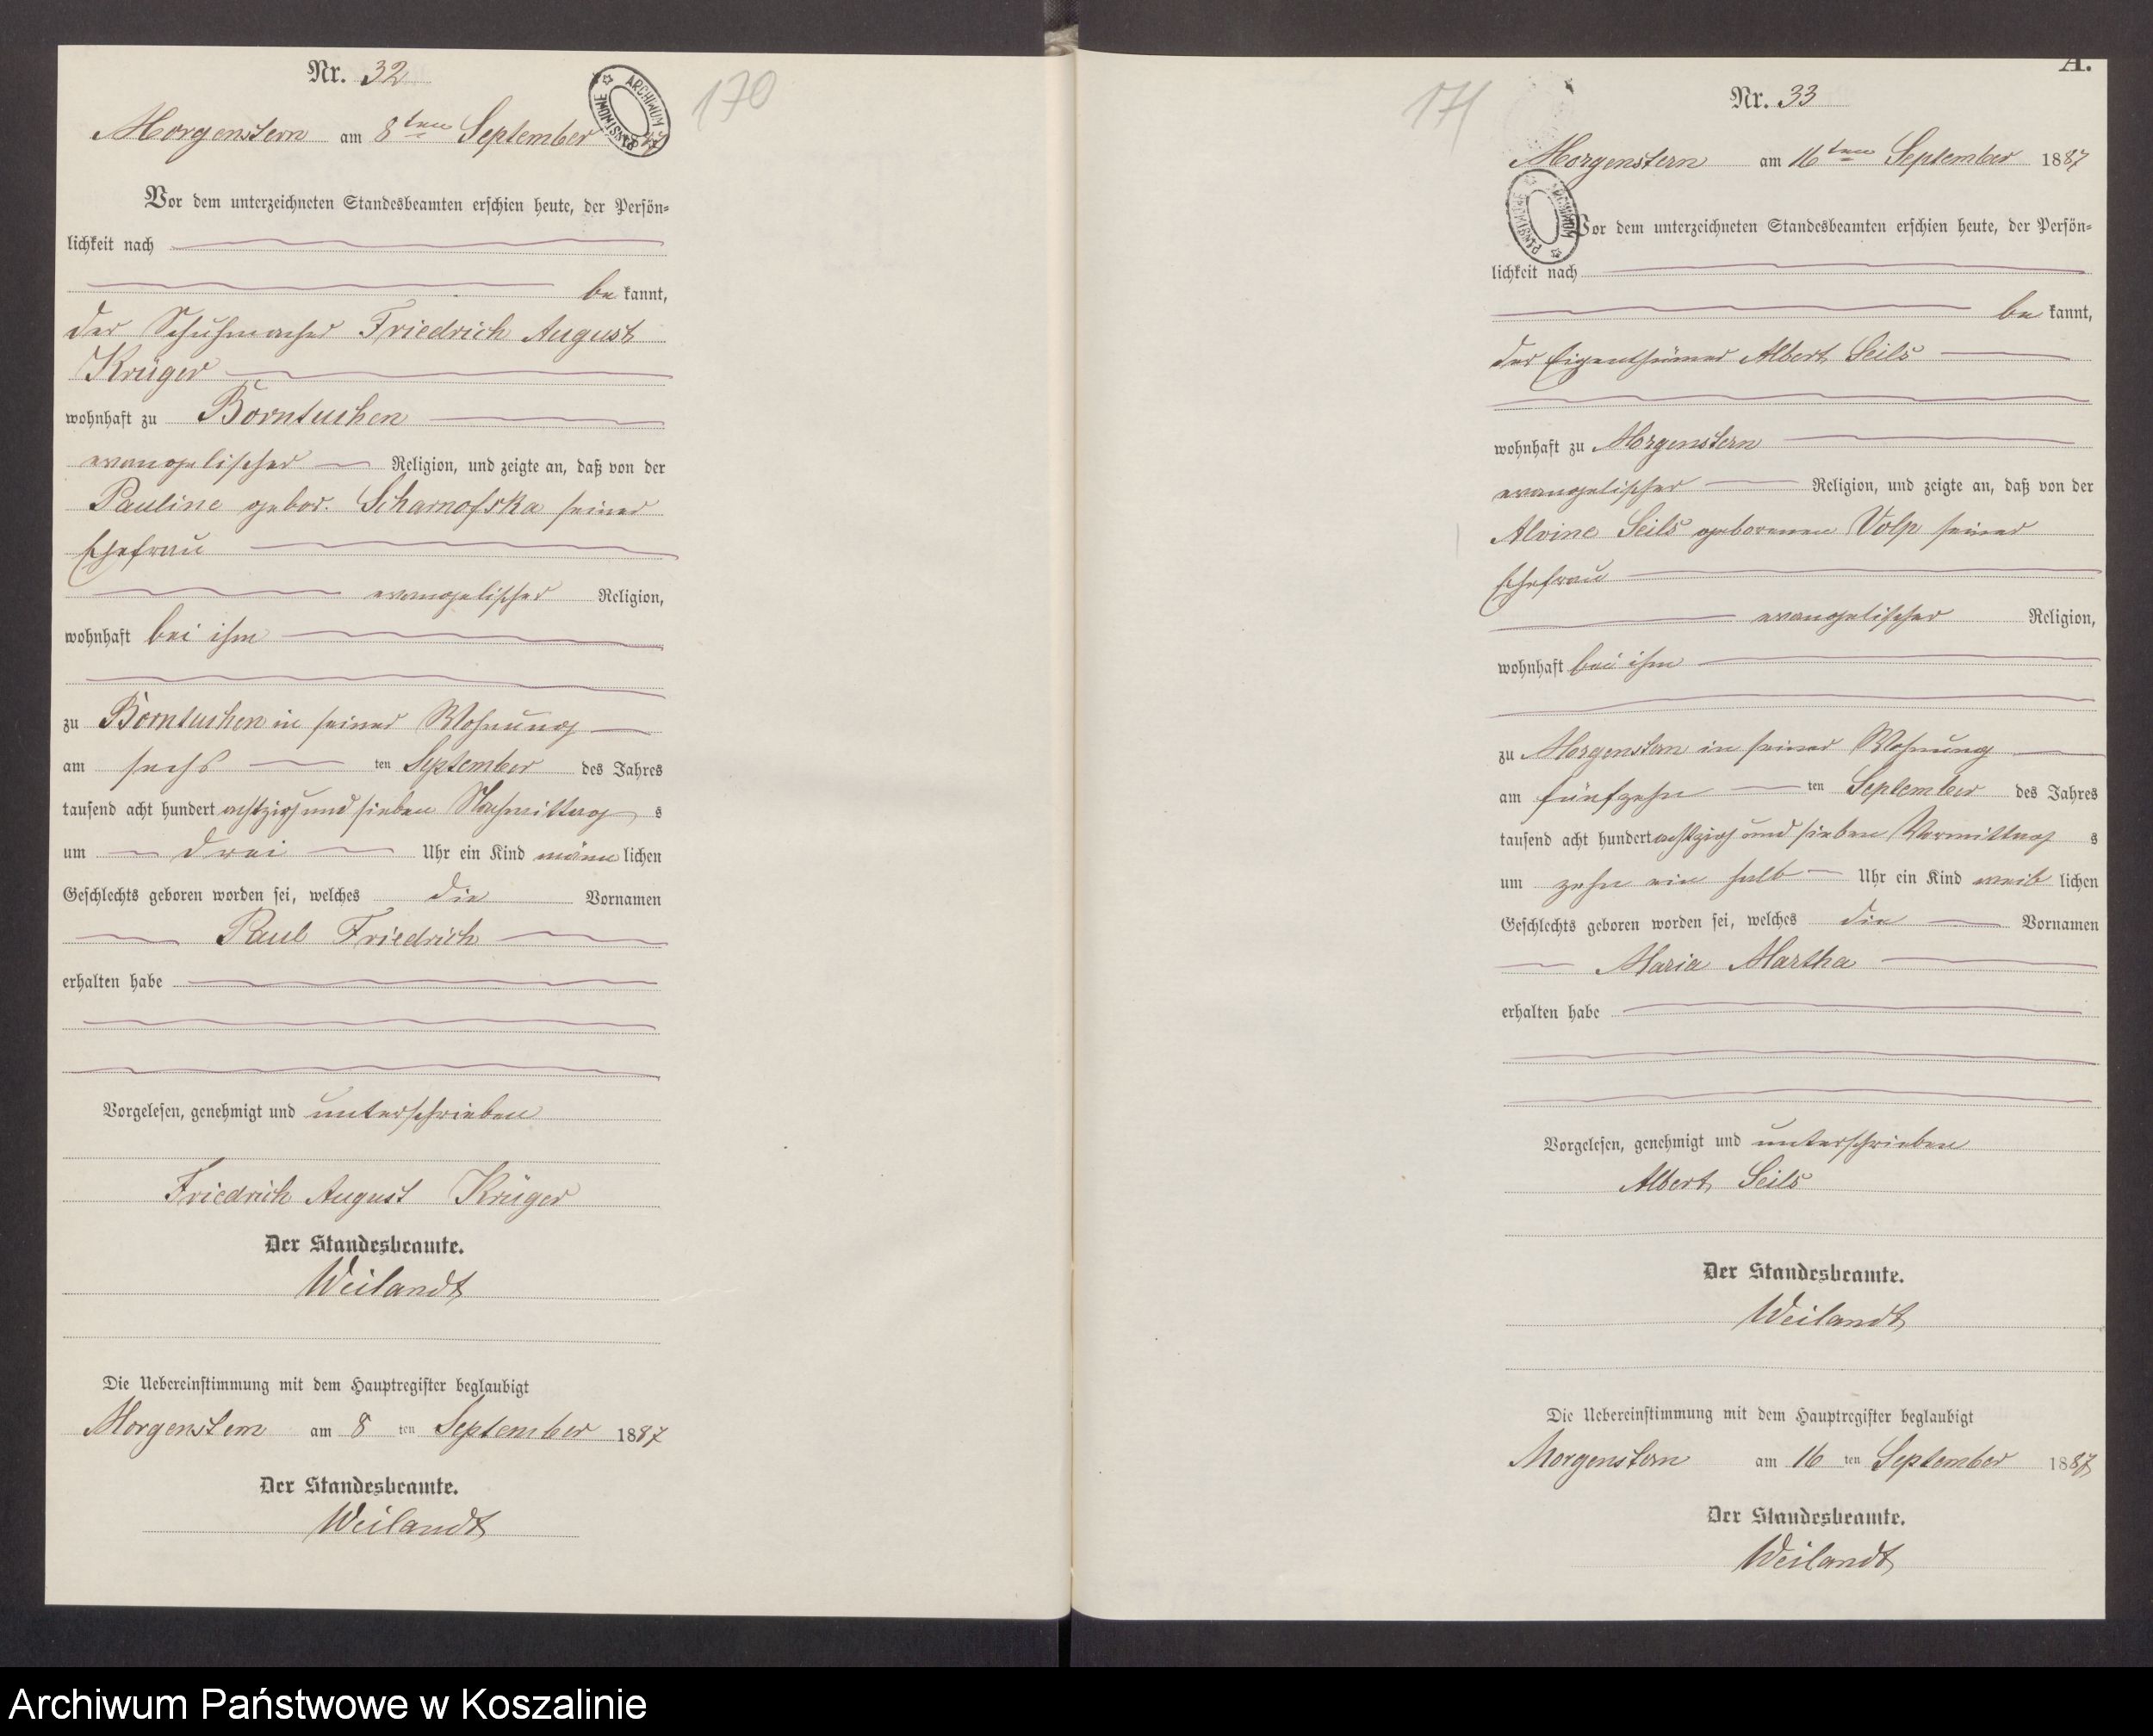 Nr. 32
170
Morgenstern am 8ten September 1887
ARCHIWUM PAŃSTWOWE
Vor dem unterzeichneten Standesbeamten erschien heute, der Persön-
lichkeit nach
be kannt,
der Schuhmacher Friedrich August
Krüger
wohnhaft zu Borntuchen
evangelischer Religion, und zeigte an, daß von der
Pauline gebor. Scharnofska seiner
Ehefrau
evangelischer Religion,
wohnhaft bei ihm
zu Borntuchen in seiner Wohnung
am sechs ten September des Jahres
tausend acht hundert achtzig und sieben Nachmittag s
um drei Uhr ein Kind männ lichen
Geschlechts geboren worden sei, welches die Vornamen
Paul Friedrich
erhalten habe
Vorgelesen, genehmigt und unterschrieben
Friedrich August Krüger
Der Standesbeamte.
Weilandt
Die Uebereinstimmung mit dem Hauptregister beglaubigt
Morgenstern am 8 ten September 1887
Der Standesbeamte.
Weilandt
A.
171
Nr. 33
Morgenstern am 16ten September 1887
ARCHIWUM PAŃSTWOWE
Vor dem unterzeichneten Standesbeamten erschien heute, der Persön-
lichkeit nach
be kannt,
der Eigenthümer Albert Seils
wohnhaft zu Morgenstern
evangelischer Religion, und zeigte an, daß von der
Alvine Seils geborenen Volp seiner
Ehefrau
evangelischer Religion,
wohnhaft bei ihm
zu Morgenstern in seiner Wohnung
am fünfzehn ten September des Jahres
tausend acht hundert achtzig und sieben Vormittag s
um zehn ein halb Uhr ein Kind weib lichen
Geschlechts geboren worden sei, welches die Vornamen
Maria Martha
erhalten habe
Vorgelesen, genehmigt und unterschrieben
Albert Seils
Der Standesbeamte.
Weilandt
Die Uebereinstimmung mit dem Hauptregister beglaubigt
Morgenstern am 16 ten September 1887
Der Standesbeamte.
Weilandt
Archiwum Państwowe w Koszalinie